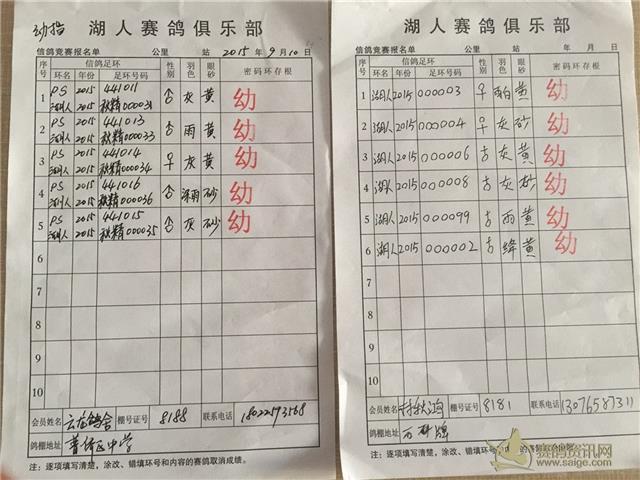 幼指 湖人赛鸽俱乐部
信鸽竞赛报名单 公里 站 2015年9月10日
序号 信鸽足环 性别 羽色 眼砂 密码环存根
环名 年份 足环号码
1 PS 2015 441011 ♂ 灰 黄 幼
湖人 2015 秋精000031
2 PS 2015 441013 ♂ 雨 黄 幼
湖人 2015 秋精000033
3 PS 2015 441014 ♀ 灰 黄 幼
湖人 2015 秋精000034
4 PS 2015 441016 ♂ 深雨 砂 幼
湖人 2015 秋精000036
5 PS 2015 441015 ♂ 灰 砂 幼
湖人 2015 秋精000035
6
7
8
9
10
会员姓名 鸽舍 棚号证号 8188 联系电话 18022593568
鸽棚地址 中学
注：逐项填写清楚，涂改、错填环号和内容的赛鸽取消成绩。
湖人赛鸽俱乐部
信鸽竞赛报名单 公里 站 年 月 日
序号 信鸽足环 性别 羽色 眼砂 密码环存根
环名 年份 足环号码
1 湖人 2015 000003 ♀ 雨白 黄 幼
2 湖人 2015 000004 ♀ 灰 砂 幼
3 湖人 2015 000006 ♂ 灰 黄 幼
4 湖人 2015 000008 ♂ 灰 砂 幼
5 湖人 2015 000099 ♂ 雨 黄 幼
6 湖人 2015 000002 ♂ 绛 黄 幼
7
8
9
10
会员姓名 棚号证号 8181 联系电话 13076587311
鸽棚地址
注：逐项填写清楚，涂改、错填环号和内容的
赛鸽资讯网
www.saige.com